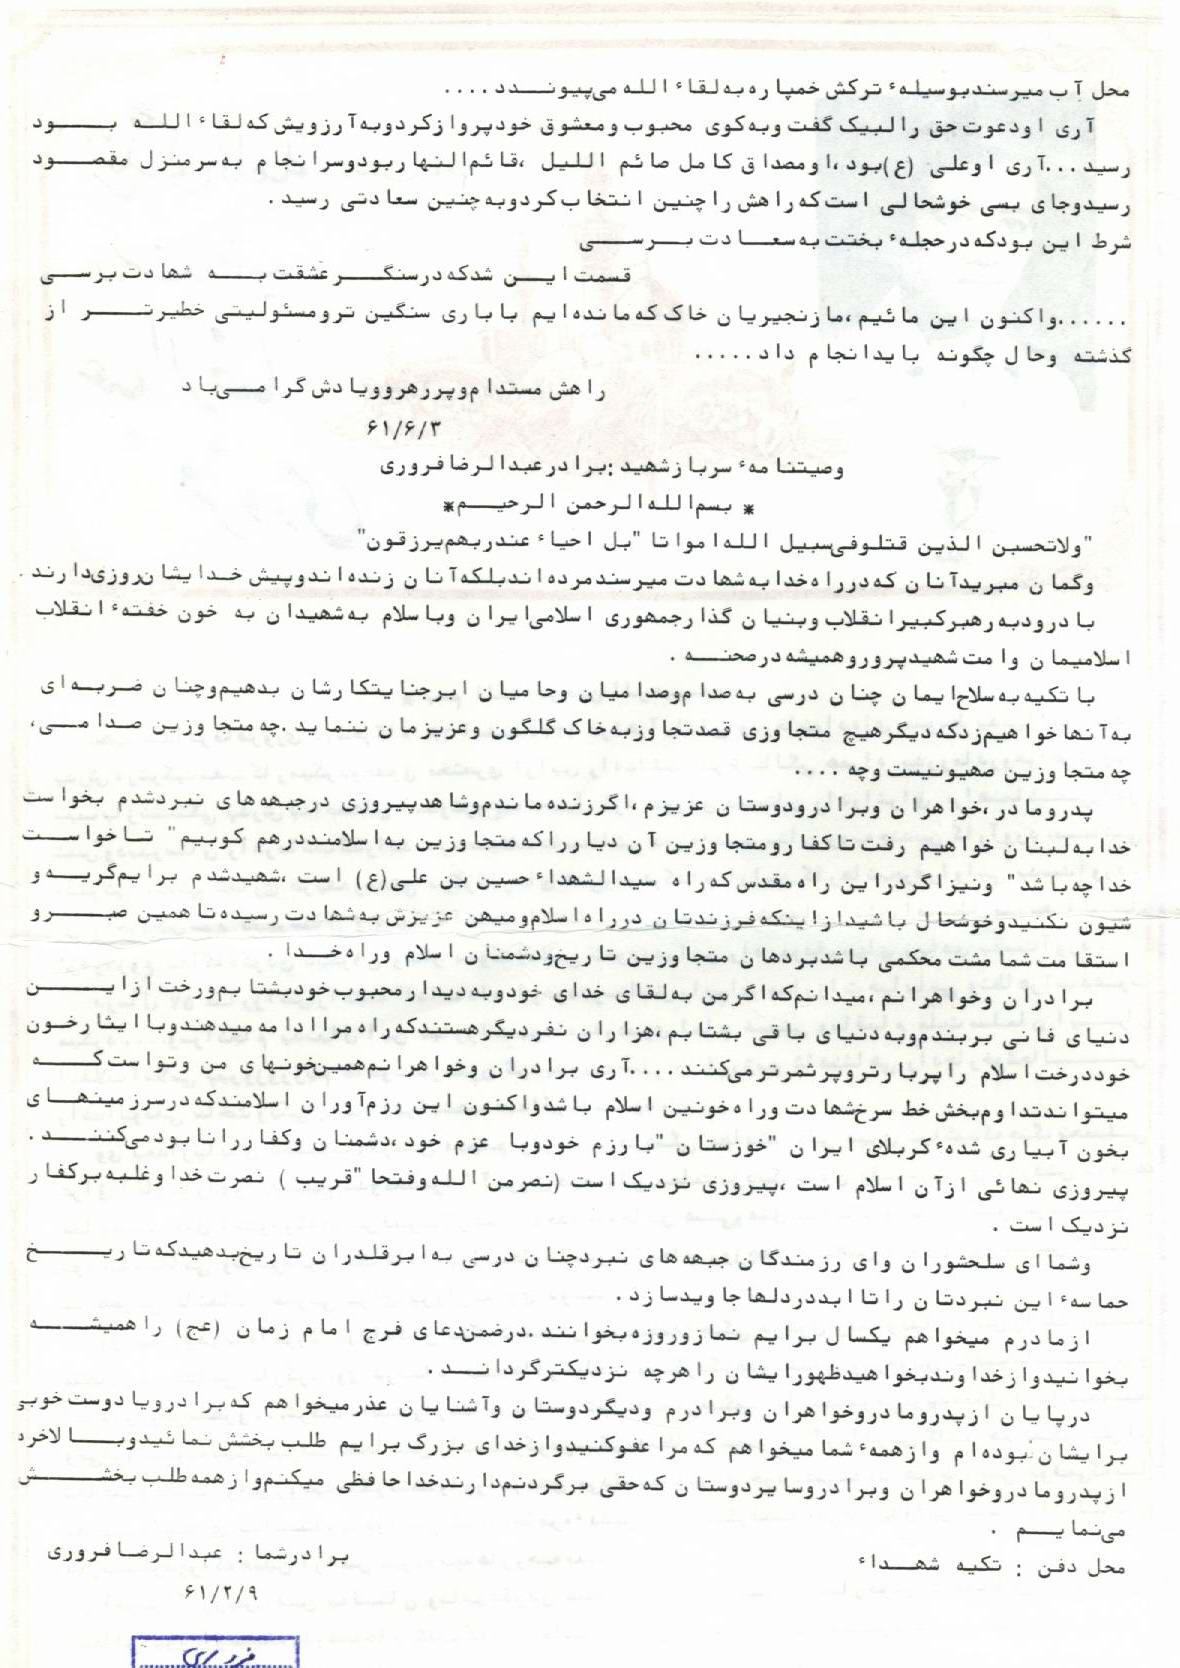 محل آب میرسندبوسیلهٔ ترکش خمپاره به لقاء الله می‌پیوندد ....
آری اودعوت حق رالبیک گفت وبه کوی محبوب ومعشوق خودپروازکردوبه آرزویش که لقاء الله بود
رسید ...آری اوعلی (ع)بود ،اومصداق کامل صائم اللیل ،قائم النهاربودوسرانجام به سرمنزل مقصود
رسیدوجای بسی خوشحالی است که راهش راچنین انتخاب کردوبه چنین سعادتی رسید .
شرط این بودکه درحجلهٔ بختت به سعادت برسی
قسمت این شدکه درسنگر عشقت به شهادت برسی
......واکنون این مائیم ،مازنجیریان خاک که مانده‌ایم باباری سنگین ترومسئولیتی خطیرتر از
گذشته وحال چگونه بایدانجام داد .....
راهش مستدام وپررهروویادش گرامی‌باد
۶۱/۶/۳
وصیتنامهٔ سربازشهید :برادرعبدالرضافروری
* بسم الله الرحمن الرحیم *
"ولاتحسبن الذین قتلوفی سبیل الله امواتا "بل احیاء عندربهم یرزقون"
وگمان مبریدآنان که درراه خدابه شهادت میرسندمرده‌اندبلکه آنان زنده‌اندوپیش خدایشان روزی دارند .
بادرودبه رهبرکبیرانقلاب وبنیان گذارجمهوری اسلامی ایران وباسلام به شهیدان به خون خفتهٔ انقلاب
اسلامیمان وامت شهیدپروروهمیشه درصحنه .
باتکیه به سلاح ایمان چنان درسی به صدام وصدامیان وحامیان ابرجنایتکارشان بدهیم وچنان ضربه‌ای
به آنهاخواهیم زدکه دیگرهیچ متجاوزی قصدتجاوزبه خاک گلگون وعزیزمان ننماید .چه متجاوزین صدامی،
چه متجاوزین صهیونیست وچه ....
پدرومادر ،خواهران وبرادرودوستان عزیزم ،اگرزنده ماندم وشاهدپیروزی درجبهه‌های نبردشدم بخواست
خدابه لبنان خواهیم رفت تاکفارومتجاوزین آن دیارراکه متجاوزین به اسلامنددرهم کوبیم "تاخواست
خداچه باشد" ونیزاگردراین راه مقدس که راه سیدالشهداء حسین بن علی(ع) است ،شهیدشدم برایم گریه و
شیون نکنیدوخوشحال باشیدازاینکه فرزندتان درراه اسلام ومیهن عزیزش به شهادت رسیده تاهمین صبرو
استقامت شمامشت محکمی باشدبردهان متجاوزین تاریخ ودشمنان اسلام وراه خدا .
برادران وخواهرانم ،میدانم که اگرمن به لقای خدای خودوبه دیدارمحبوب خودبشتابم ورخت ازاین
دنیای فانی بربندم وبه دنیای باقی بشتابم ،هزاران نفردیگرهستندکه راه مراادامه میدهندوباایثارخون
خوددرخت اسلام راپربارتروپرثمرترمی‌کنند ....آری برادران وخواهرانم همین خونهای من وتواست که
میتواندتداوم بخش خط سرخ شهادت وراه خونین اسلام باشدواکنون این رزم آوران اسلامندکه درسرزمینهای
بخون آبیاری شدهٔ کربلای ایران "خوزستان "بارزم خودوبا عزم خود ،دشمنان وکفاررانابودمی‌کنند .
پیروزی نهائی ازآن اسلام است ،پیروزی نزدیک است (نصرمن الله وفتحا "قریب ) نصرت خداوغلبه برکفار
نزدیک است .
وشماای سلحشوران وای رزمندگان جبهه‌های نبردچنان درسی به ابرقلدران تاریخ بدهیدکه تاریخ
حماسهٔ این نبردتان راتاابددردلهاجاویدسازد .
ازمادرم میخواهم یکسال برایم نمازوروزه بخوانند .درضمن دعای فرج امام زمان (عج) راهمیشه
بخوانیدوازخداوندبخواهیدظهورایشان راهرچه نزدیکترگرداند .
درپایان ازپدرومادروخواهران وبرادرم ودیگردوستان وآشنایان عذرمیخواهم که برادرویادوست خوبی
برایشان نبوده‌ام وازهمهٔ شمامیخواهم که مراعفوکنیدوازخدای بزرگ برایم طلب بخشش نمائیدوبالاخره
ازپدرومادروخواهران وبرادروسایردوستان که حقی برگردنم دارندخداحافظی میکنم وازهمه طلب بخشش
می‌نمایم .
محل دفن : تکیه شهداء
برادرشما : عبدالرضافروری
۶۱/۲/۹